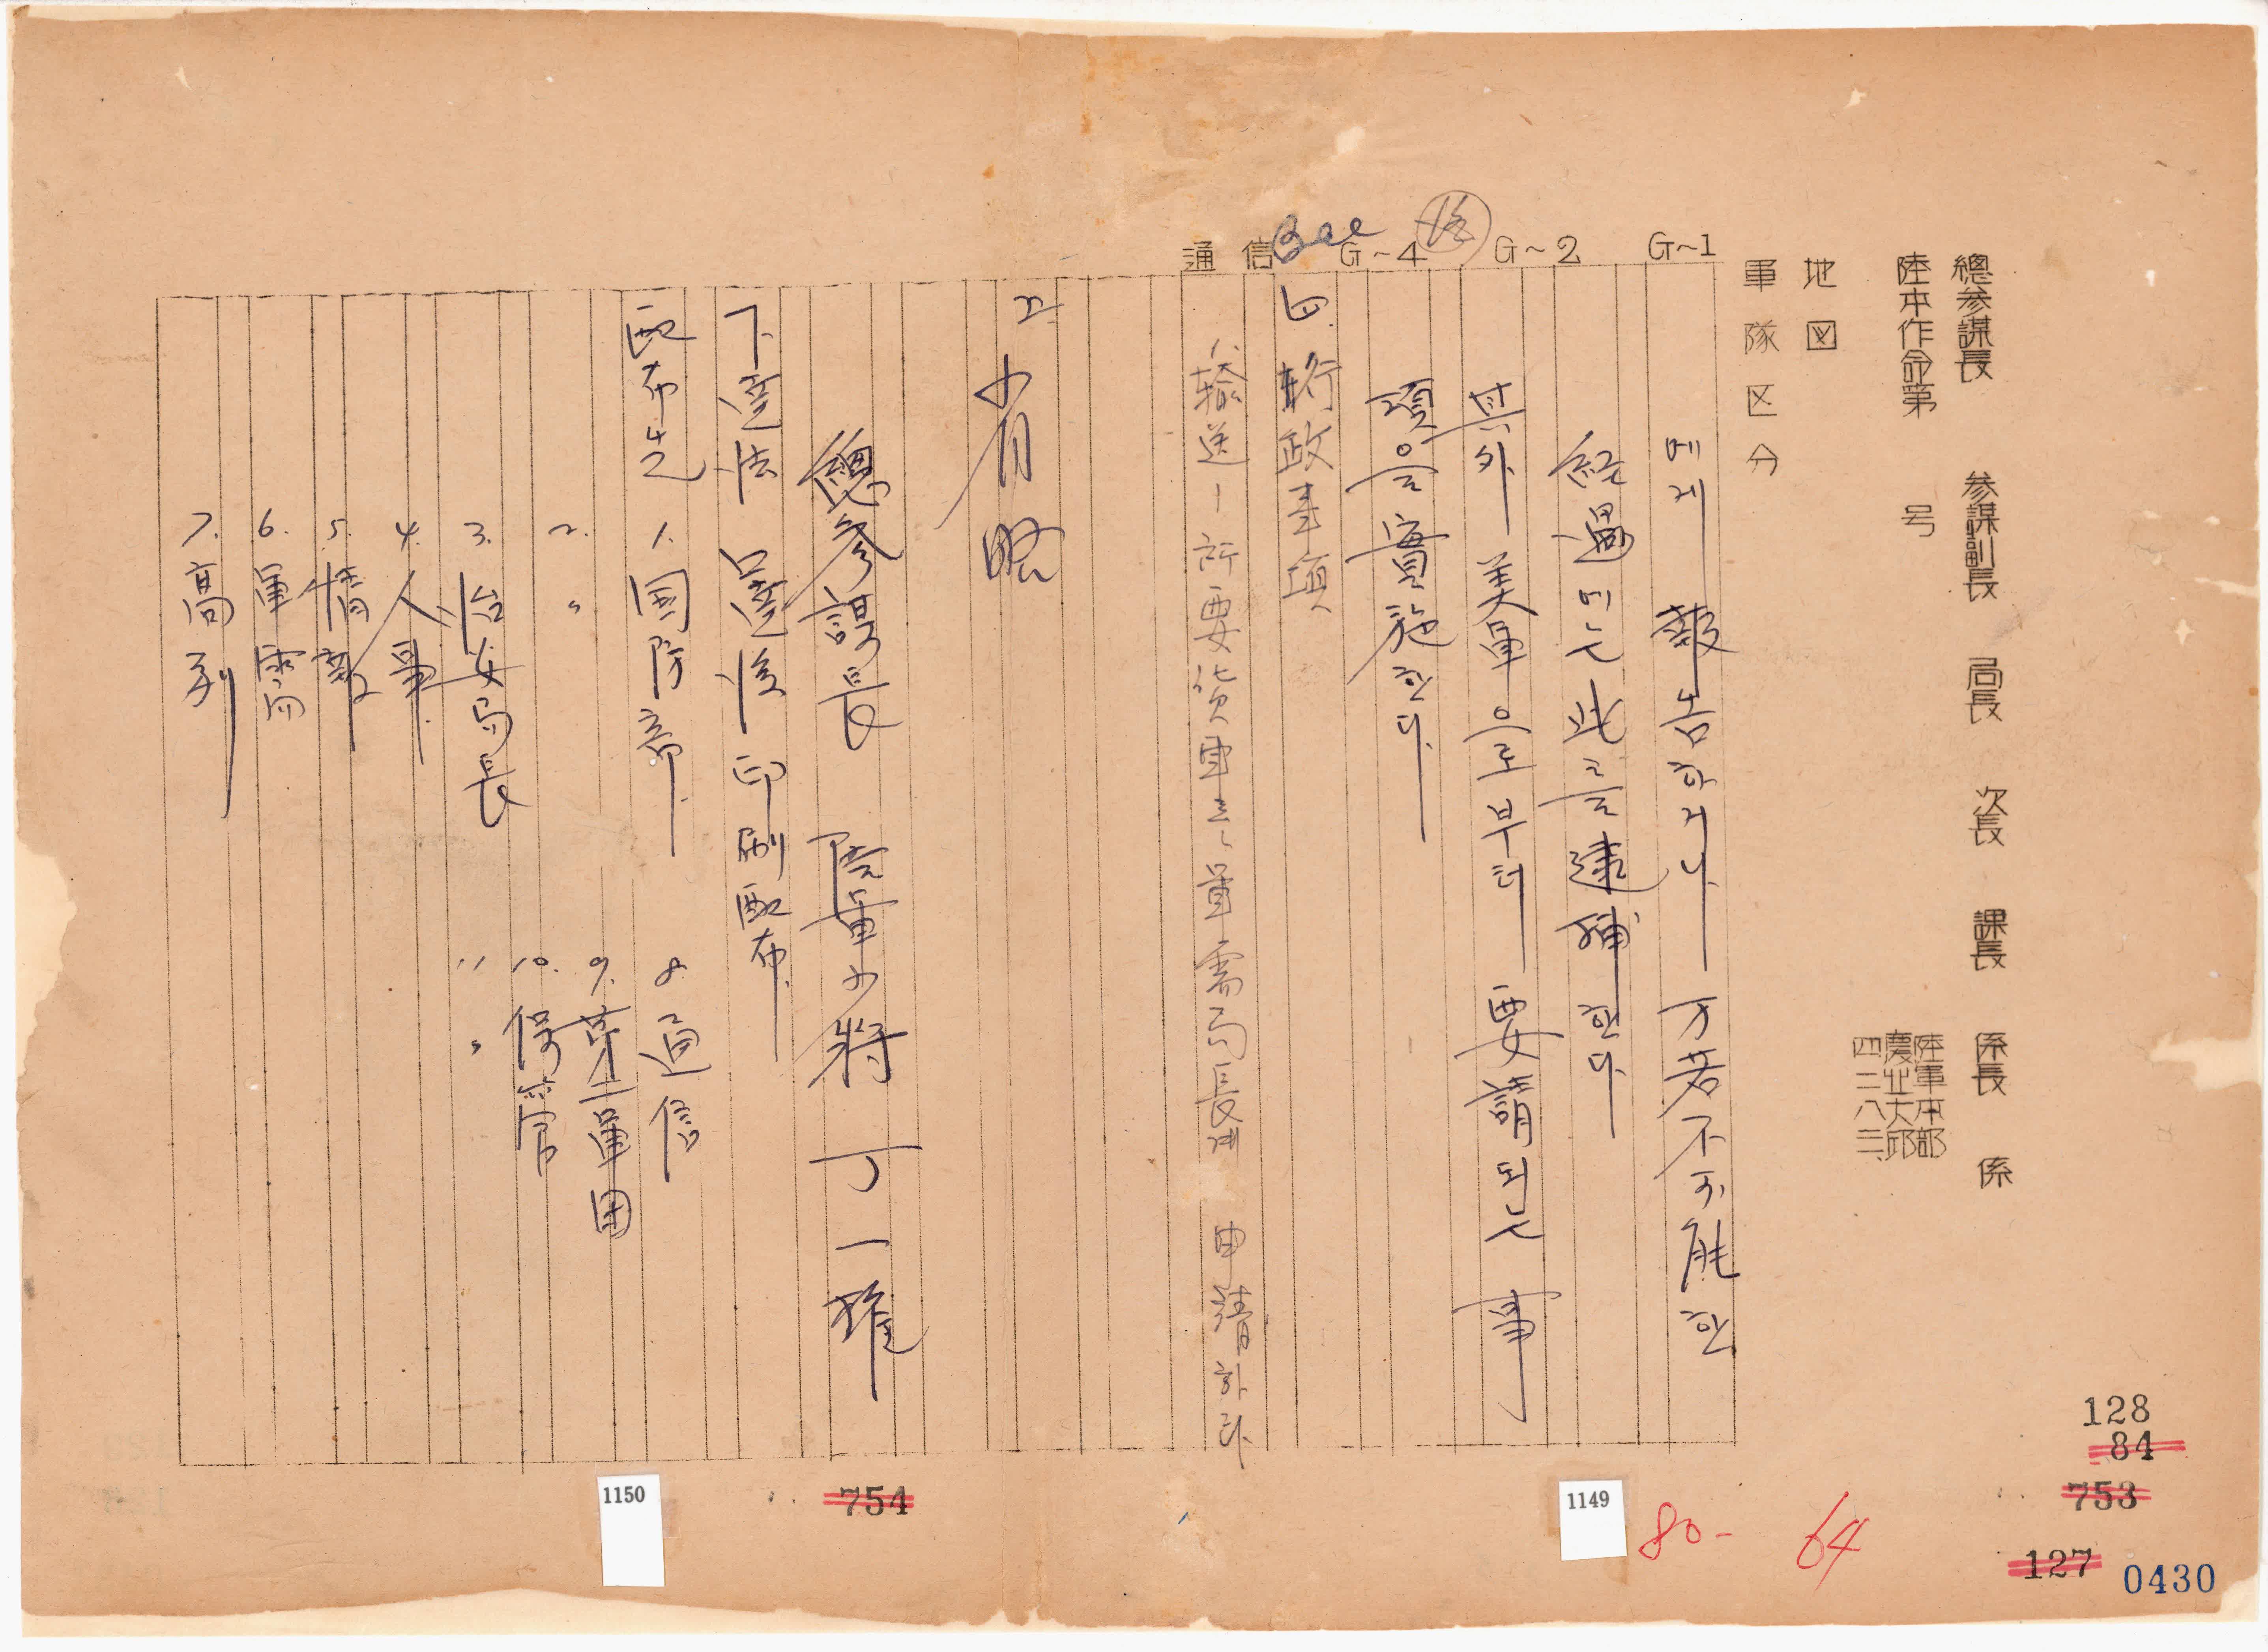 總参謀長 参謀副長 局長 次長 課長 係長 係
陸本作命第 号
陸軍本部
慶北大邱
四二八三、
地図
軍隊区分
G~1
G~2
G~4
通信
Bae
에게 報告하거나 万若不可能한
経過에는 此를 逮捕한다
其外 美軍으로부터 要請되는 事
項을 實施한다.
四. 行政事項
1. 輸送 - 所要貨車는 軍需局長에 申請하라
2. 省略
總参謀長 陸軍少將 丁一權
下達法 口達後 印刷配布
配布先 1. 国防部.
2. 〃
3. 治安局長
4. 人事
5. 情報
6. 軍需局
7. 高列
8. 通信
9. 第二軍団
10. 保管
11 〃
1149
1150
754
128
84
753
127
0430
80-
64